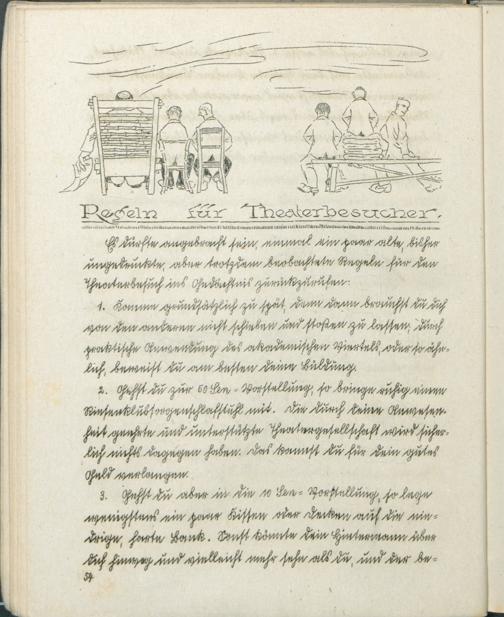 Regeln für Theaterbesucher.
Es dürfte angebracht sein, einmal ein paar alte, bisher
ungedruckte, aber trotzdem beobachtete Regeln für den
Theaterbesuch ins Gedächtnis zurückzurufen:
1. Komme grundsätzlich zu spät, denn dann brauchst du dich
von den anderen nicht schieben und stoßen zu lassen, durch
praktische Anwendung des akademischen Viertels, oder so ähn-
lich, beweist du am besten deine Bildung.
2. Gehst du zur 50 Sen-Vorstellung, so bringe ruhig einen
Riesenklubsorgenschlafstuhl mit. Die durch deine Anwesen-
heit geehrte und unterstützte Theatergesellschaft wird sicher-
lich nichts dagegen haben. Das kannst du für dein gutes
Geld verlangen.
3. Gehst du aber in die 10 Sen-Vorstellung, so lege
wenigstens ein paar Kissen oder Decken auf die nie-
drige, harte Bank. Sonst könnte dein Hintermann über
dich hinweg und vielleicht mehr sehn als du, und der be-
54